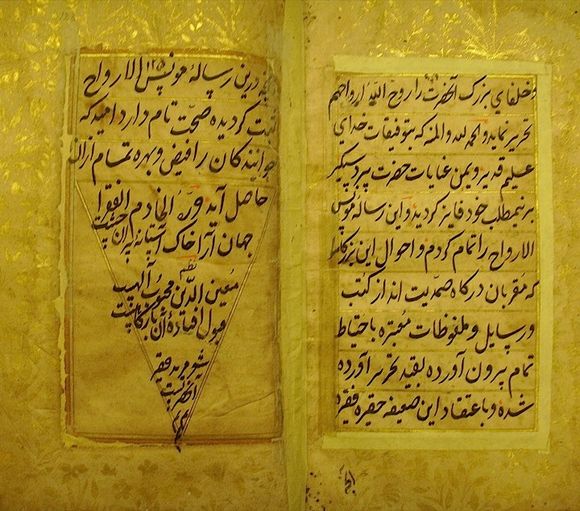 و خلفای بزرگ آنحضرت را روح الله ارواحهم
تحریر نماید و الحمد لله و المنه که بتوفیقات خدای
علیم قدیر و یمن عنایات حضرت پیر دستگیر
برین مطلب خود فایز گردید و این رساله مونس
الارواح را تمام کردم و احوال این بزرگان
که مقربان درکاه صمدیت اند از کتب
و رسایل و ملفوظات معتبره باحتیاط
تمام بیرون آورده بقید تحریر آورده
شده و باعتقاد این ضعیفه حقیره فقیره
درین رساله مونس الارواح
ثبت کردیده صحت تام دارد امید که
خوانندکان را فیض و بهره تمام از ان
حاصل آید الخادم الفقرا
جهان آرا خاک آستانه پیران چشت
نظم
معین الدین محبوب الهی